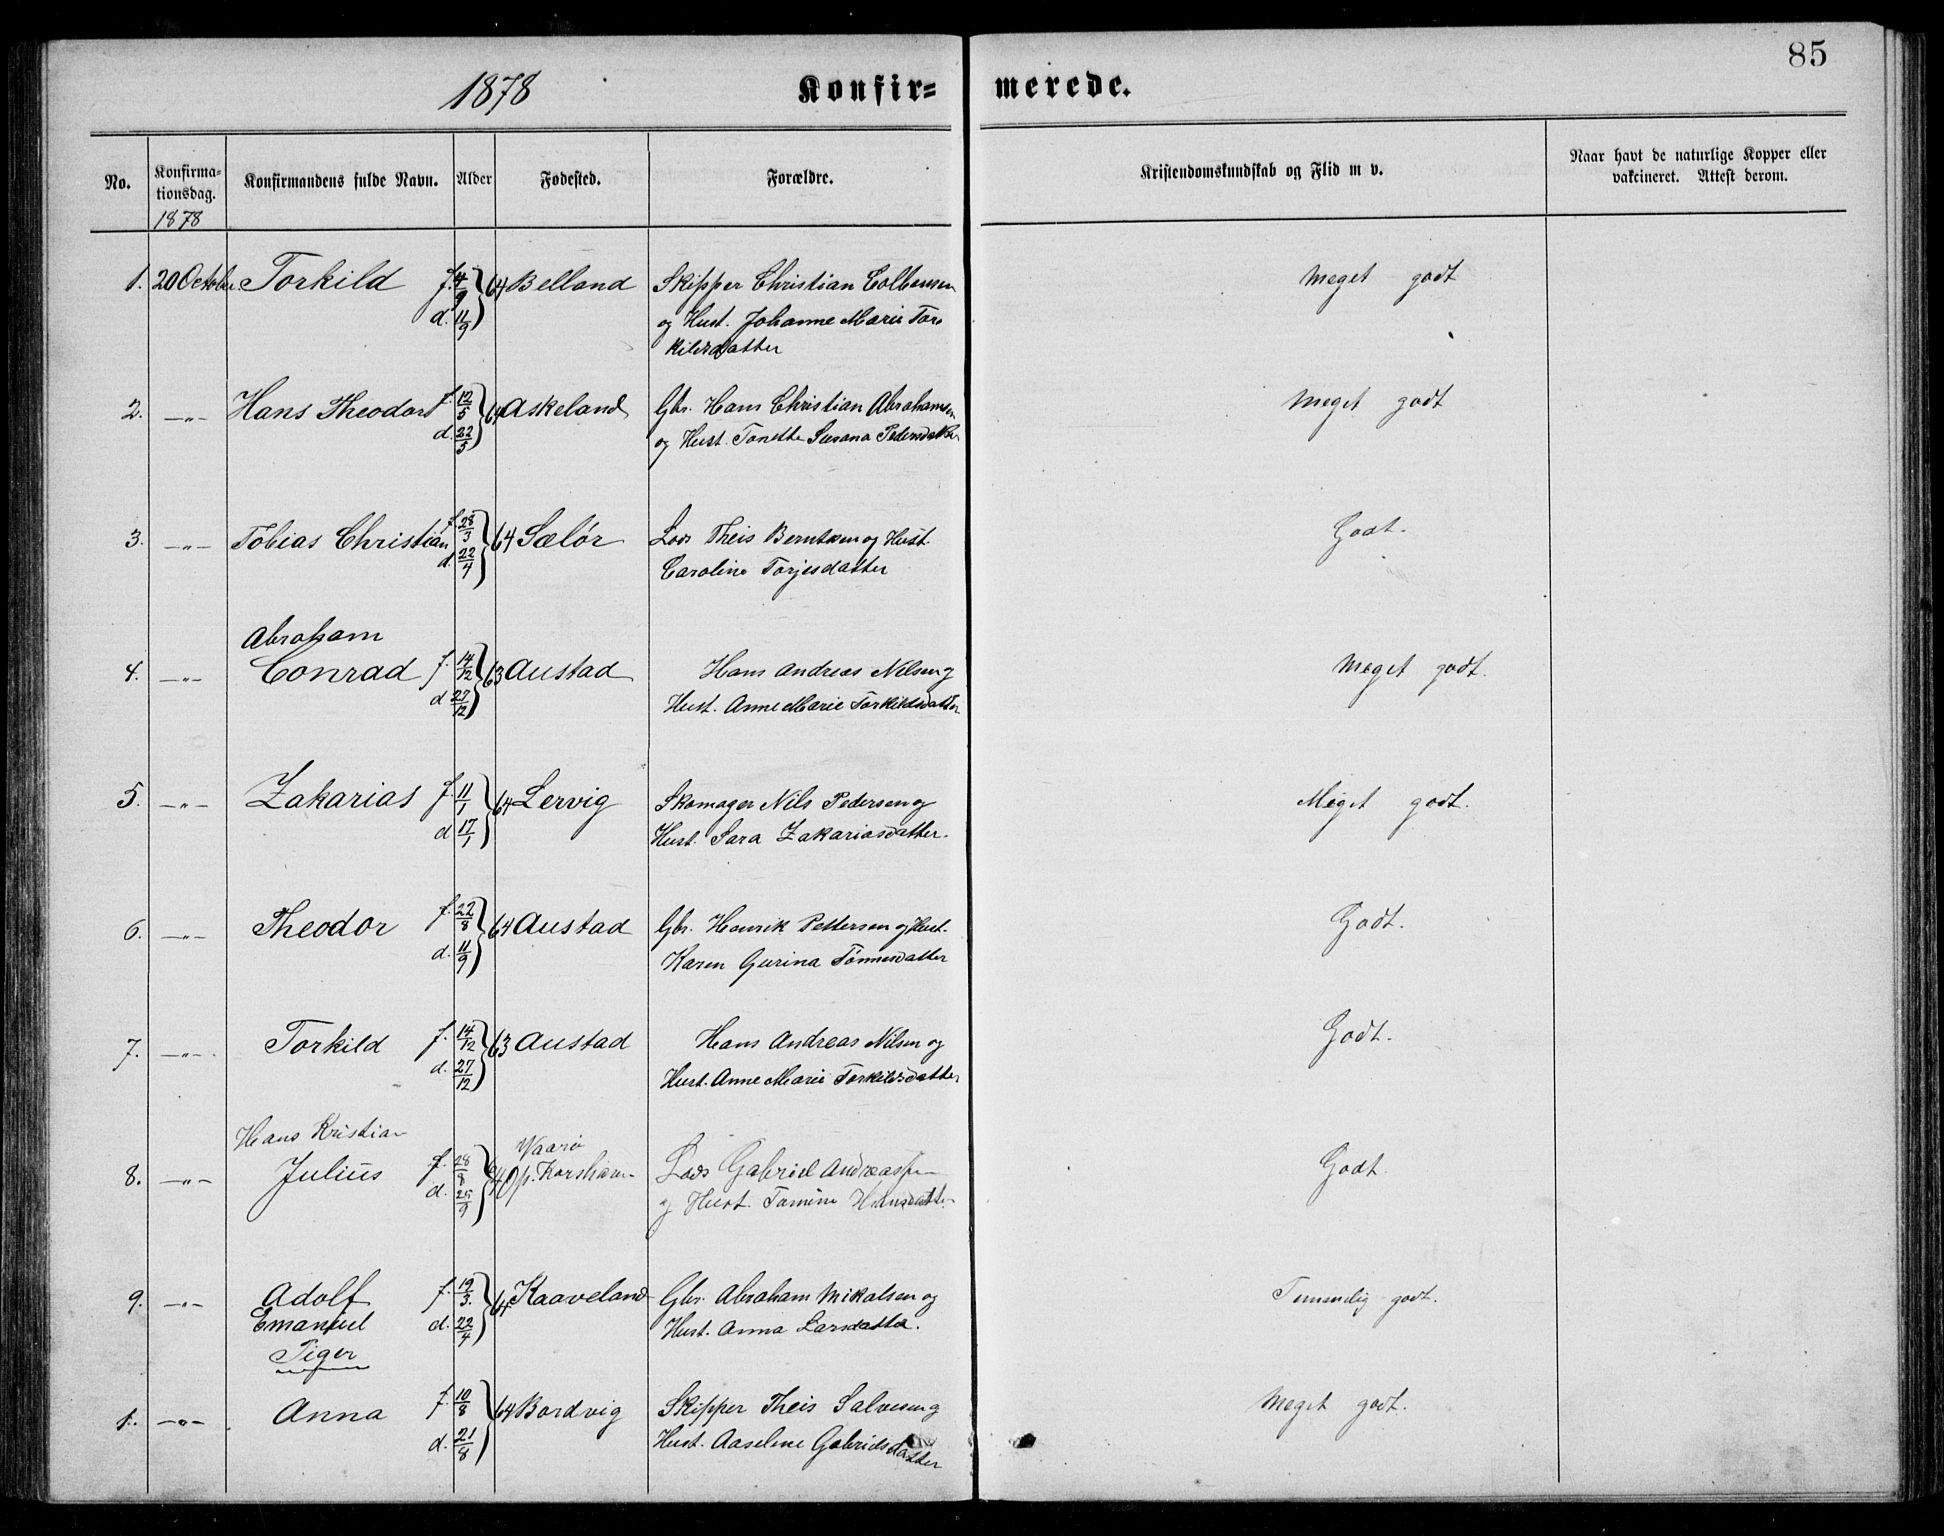 85
1878 Konfir= merede.
No. Konfirma-tionsdag. Konfirmandens fulde Navn. Alder Fødested. Forældre. Kristendomskundskab og Flid m v. Naar havt de naturlige Kopper eller vakcineret. Attest derom.
1878
1. 20 October Torkild f. 4/9 d. 11/9 64 Belland Skipper Christian Colbensen Meget godt
og Hust. Johanne Marie Tor
kildsdatter
2. —"— Hans Theodor f. 12/5 d. 22/5 64 Askeland Gbr. Hans Christian Abrahamsen Meget godt
og Hust. Tonette Susana Pedersdatter
3. —"— Tobias Christian f. 28/3 d. 22/4 64 Sælør Lods Theis Berntsen og Hust. Godt.
Caroline Torjesdatter
Abraham
4. —"— Conrad f. 14/12 d. 27/12 63 Austad Hans Andreas Nilsen og Meget godt.
Hust. Anne Marie Torkildsdatter
5. —"— Zakarias f. 11/1 d. 17/1 64 Lervig Skomager Nils Pedersen og Meget godt.
Hust. Sara Zakariasdatter.
6. —"— Theodor f. 22/8 d. 11/9 64 Austad Gbr. Henrik Pettersen og Hust. Godt.
Karen Gurina Tønnesdatter
7. —"— Torkild f. 14/12 d. 27/12 63 Austad Hans Andreas Nilsen og Godt.
Hust. Anne Marie Torkildsdatter
Hans Kristian Vaarø
8. —"— Julius f. 28/8 d. 25/9 64 Op. Korshavn Lods Gabriel Andreassen Godt
og Hust. Tomine Hansdatter
9. —"— Adolf f. 19/3. d. 22/4 64 Kaaveland Gbr. Abraham Mikalsen og Temmelig godt.
Emanuel Hust. Anna Larsdatter.
Piger
1. —"— Anna f. 10/8 d. 21/8 64 Bordvig Skipper Theis Salvesen og Meget godt.
Hust. Aaselene Gabrielsdatter